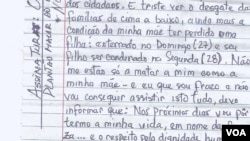 dos cidadãos. E triste ver o desgate das
famílias de cima a baixo, ainda mais a
condição da minha mãe ter perdido uma
filha: enterrado no Domingo (27) e seu
filho ser condenado na Segunda (28). Não
me estão só a matar a mim como a
minha mãe - e eu que sou fraco e não
vou conseguir assistir isto tudo, devo
informar que: Nos Próximos dias vou pôr
termo a minha vida, em nome da
za... e o respeito pela dignidade hum
ASSINATURA:
VOA